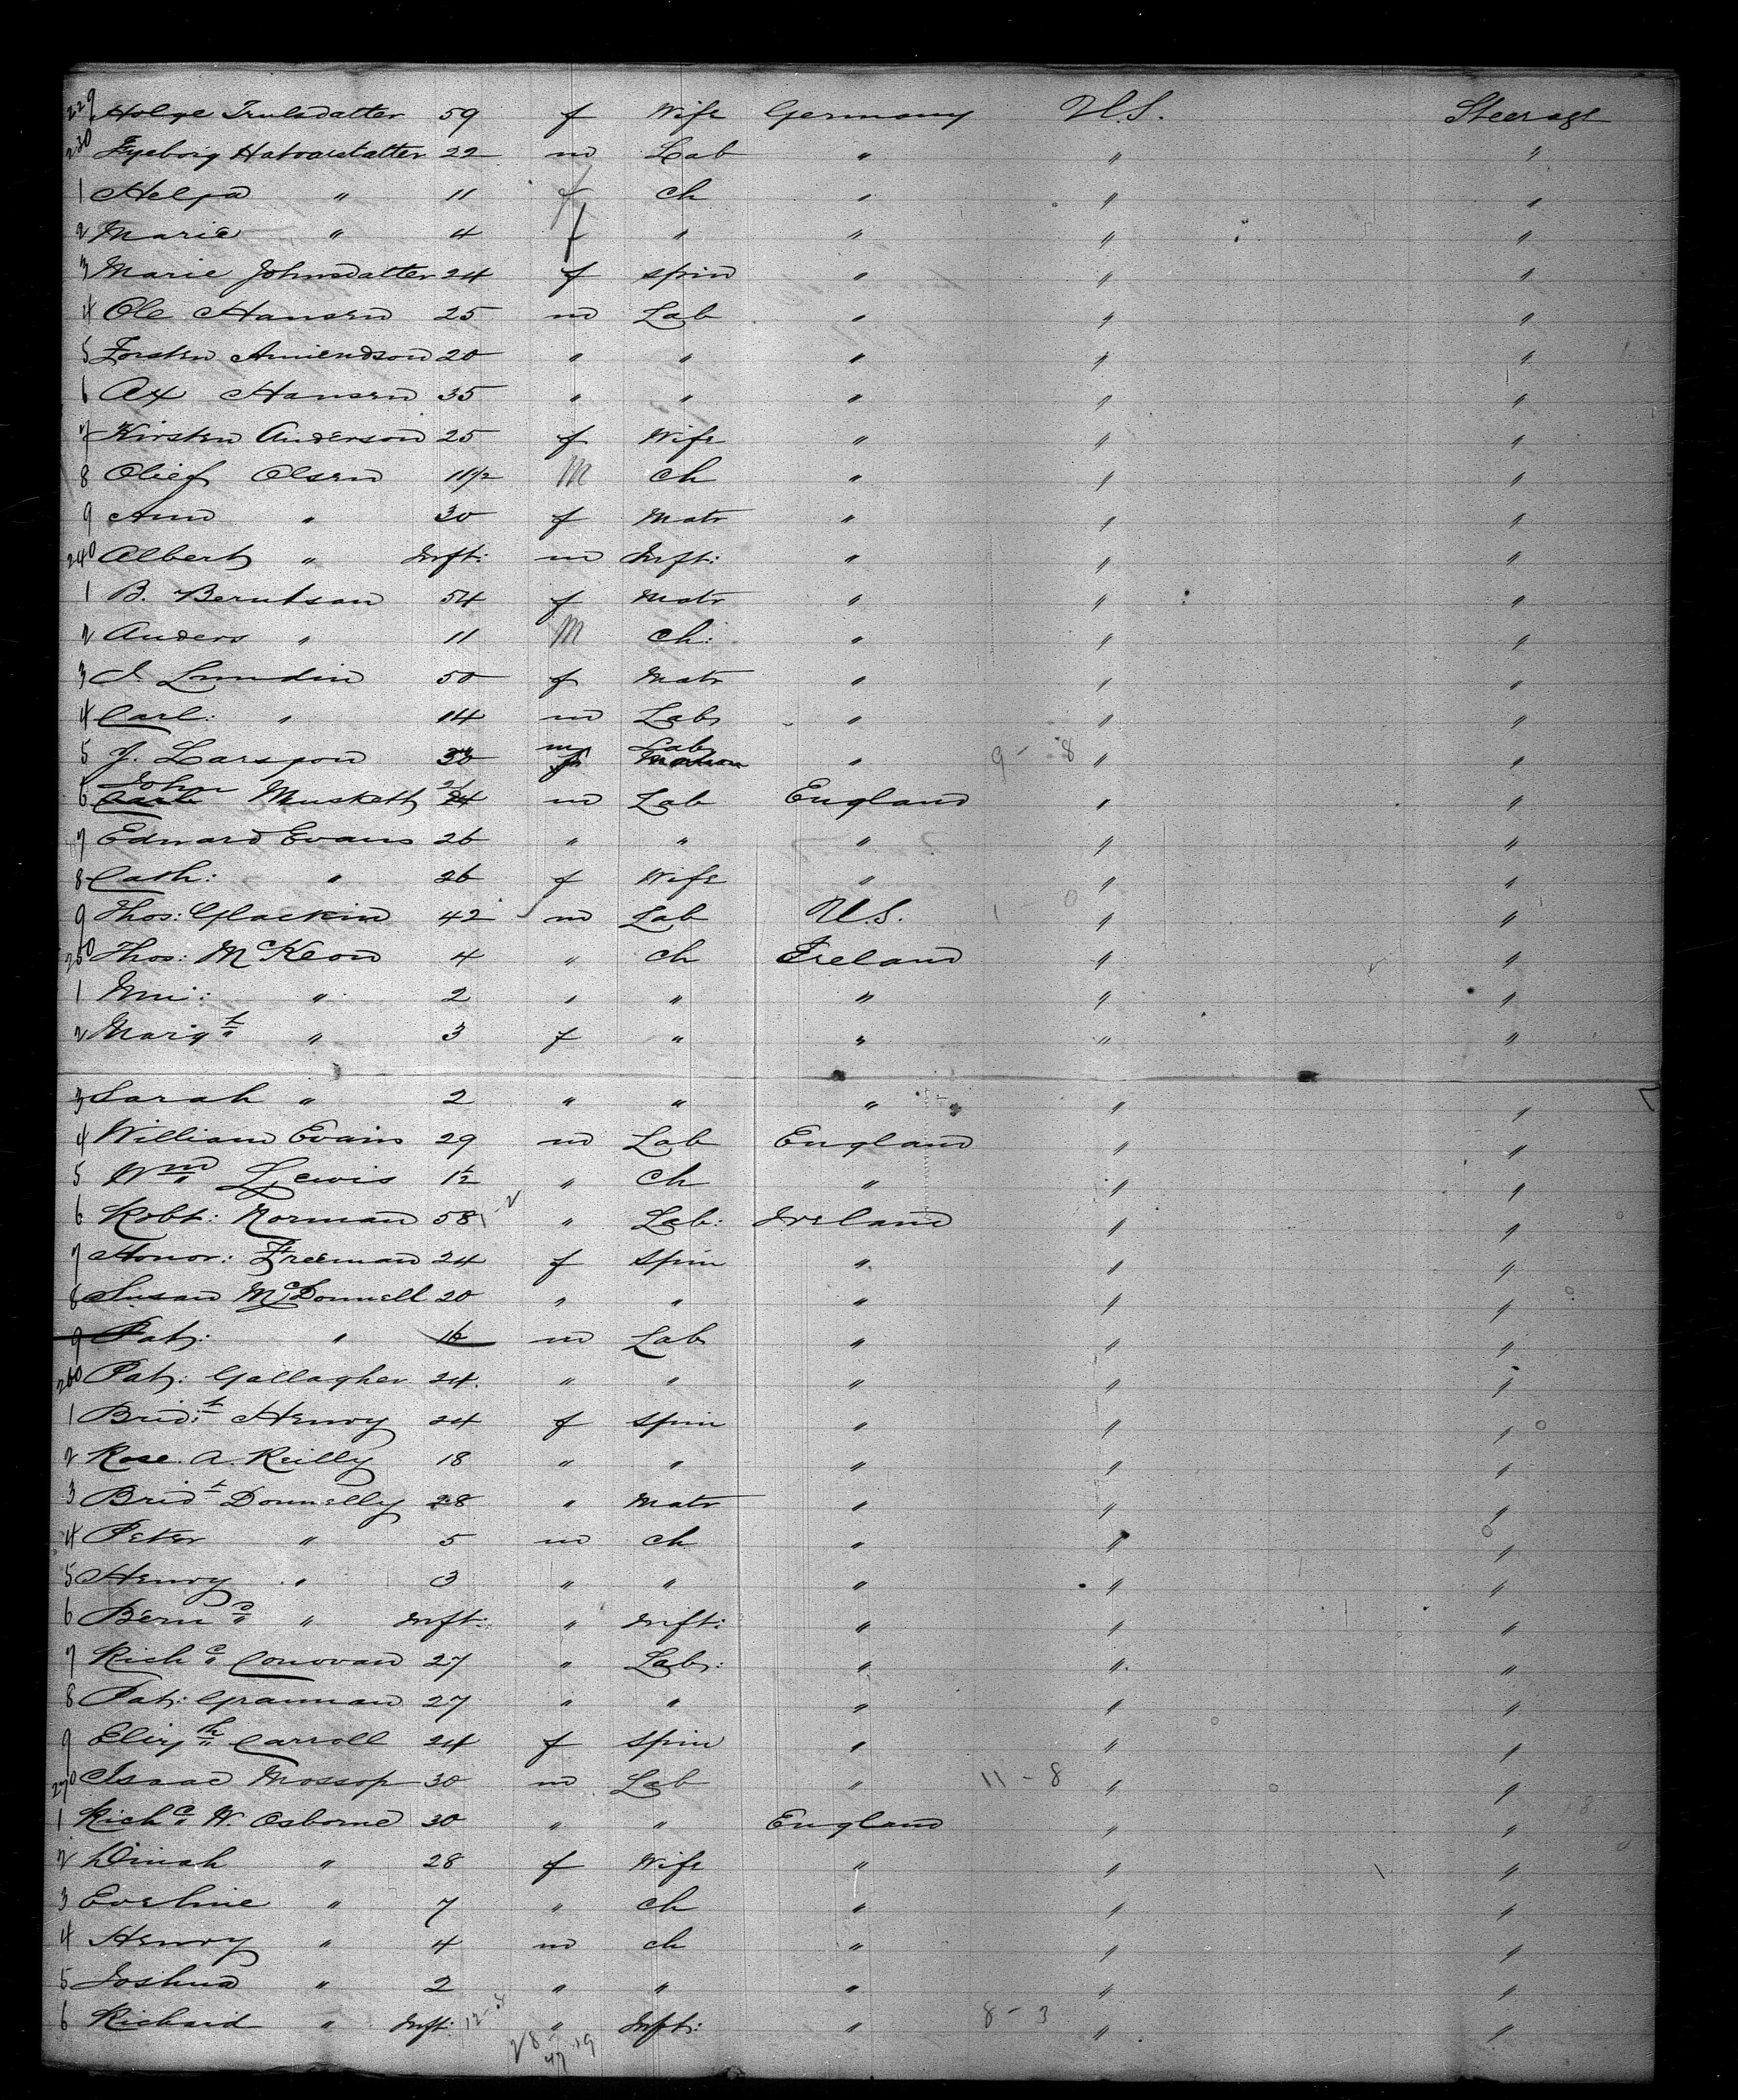 229 Holge Trulsdatter 59 f Wife Germany U.S. Steerage
230 Ingeborg Halvarstatter 22 m Lab " " "
1 Helga " 11 f ch " " "
2 Marie " 4 f " " " "
3 Marie Johnsdatter 24 f spin " " "
4 Ole Hansen 25 m Lab " " "
5 Torsten Amiendson 20 " " " " "
6 Ax Hansen 35 " " " " "
7 Kirsten Anderson 25 f Wife " " "
8 Olief Olsen 11/2 M ch " " "
9 Ann " 30 f Matr " " "
240 Albert " Inft: m Inft: " " "
1 B. Berntson 54 f Matr " " "
2 Anders " 11 M Ch: " " "
3 J. Lundin 50 f Matr " " "
4 Carl: " 14 m Lab " " "
5 J. Larsson 30 m Lab " 9 - 8 " "
6 John Muskett 24 m Lab England " "
7 Edward Evans 26 " " " " "
8 Cath: " 26 f Wife " " "
9 Thos: Glackin 42 m Lab U.S. 1 - 0 " "
250 Thos: McKeon 4 " ch Ireland " "
1 Wm: " 2 " " " " "
2 Margt " 3 f " " " "
3 Sarah " 2 " " " " "
4 William Evans 29 m Lab England " "
5 Wm Lewis 1½ " Ch " " "
6 Robt: Norman 58 " Lab: Ireland " "
7 Honor: Freeman 24 f Spin " " "
8 Susan McDonnell 20 " " " " "
9 Pat: " 16 m Lab " " "
260 Pat: Gallagher 24. " " " " "
1 Bridt Henry 24 f Spin " " "
2 Rose. A. Reilly 18 " " " " "
3 Bridt Donnelly 28 " Matr " " "
4 Peter " 5 m ch " " "
5 Henry " 3 " " " " "
6 Bernd " Inft: " Inft: " " "
7 Richd Conovan 27 " Lab: " " "
8 Pat: Grannan 27 " " " " "
9 Elizth Carroll 24 f Spin " " "
270 Isaac Mossop 30 m Lab " 11 - 8 " "
1 Richd W. Osborne 30 " " England " "
2 Dinah " 28 f Wife " " "
3 Eveline " 7 " ch " " "
4 Henry " 4 m ch " " "
5 Joshua " 2 " " " " "
6 Richard " Inft: " Inft: " 8 - 3 " "
28 19
47